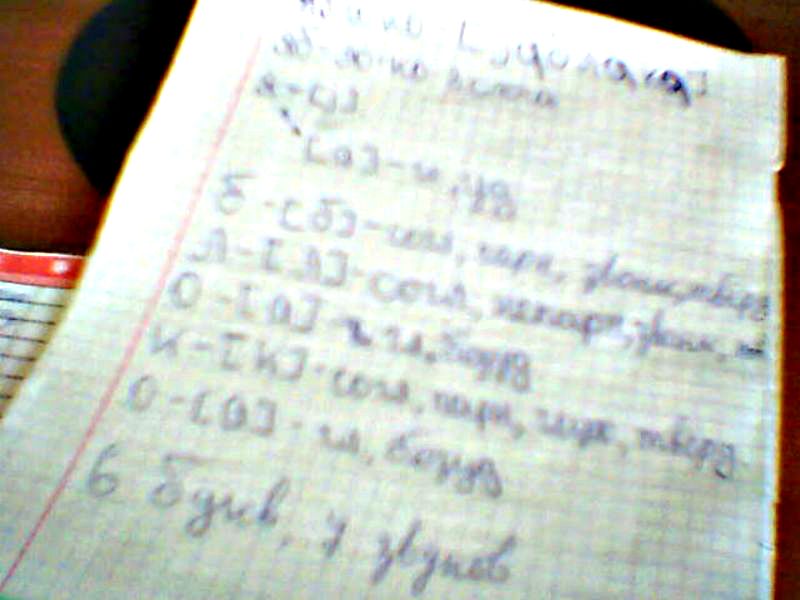 Я-[й]
[а]-гл, уд
Б-[б]-согл, парн, звонк, тверд
Л-[л]-согл, непарн, звонк,
О-[а]-гл, безуд
К-[к]-согл, парн, глух, тверд
О-[а]-гл, безуд
6 букв, 7 звуков